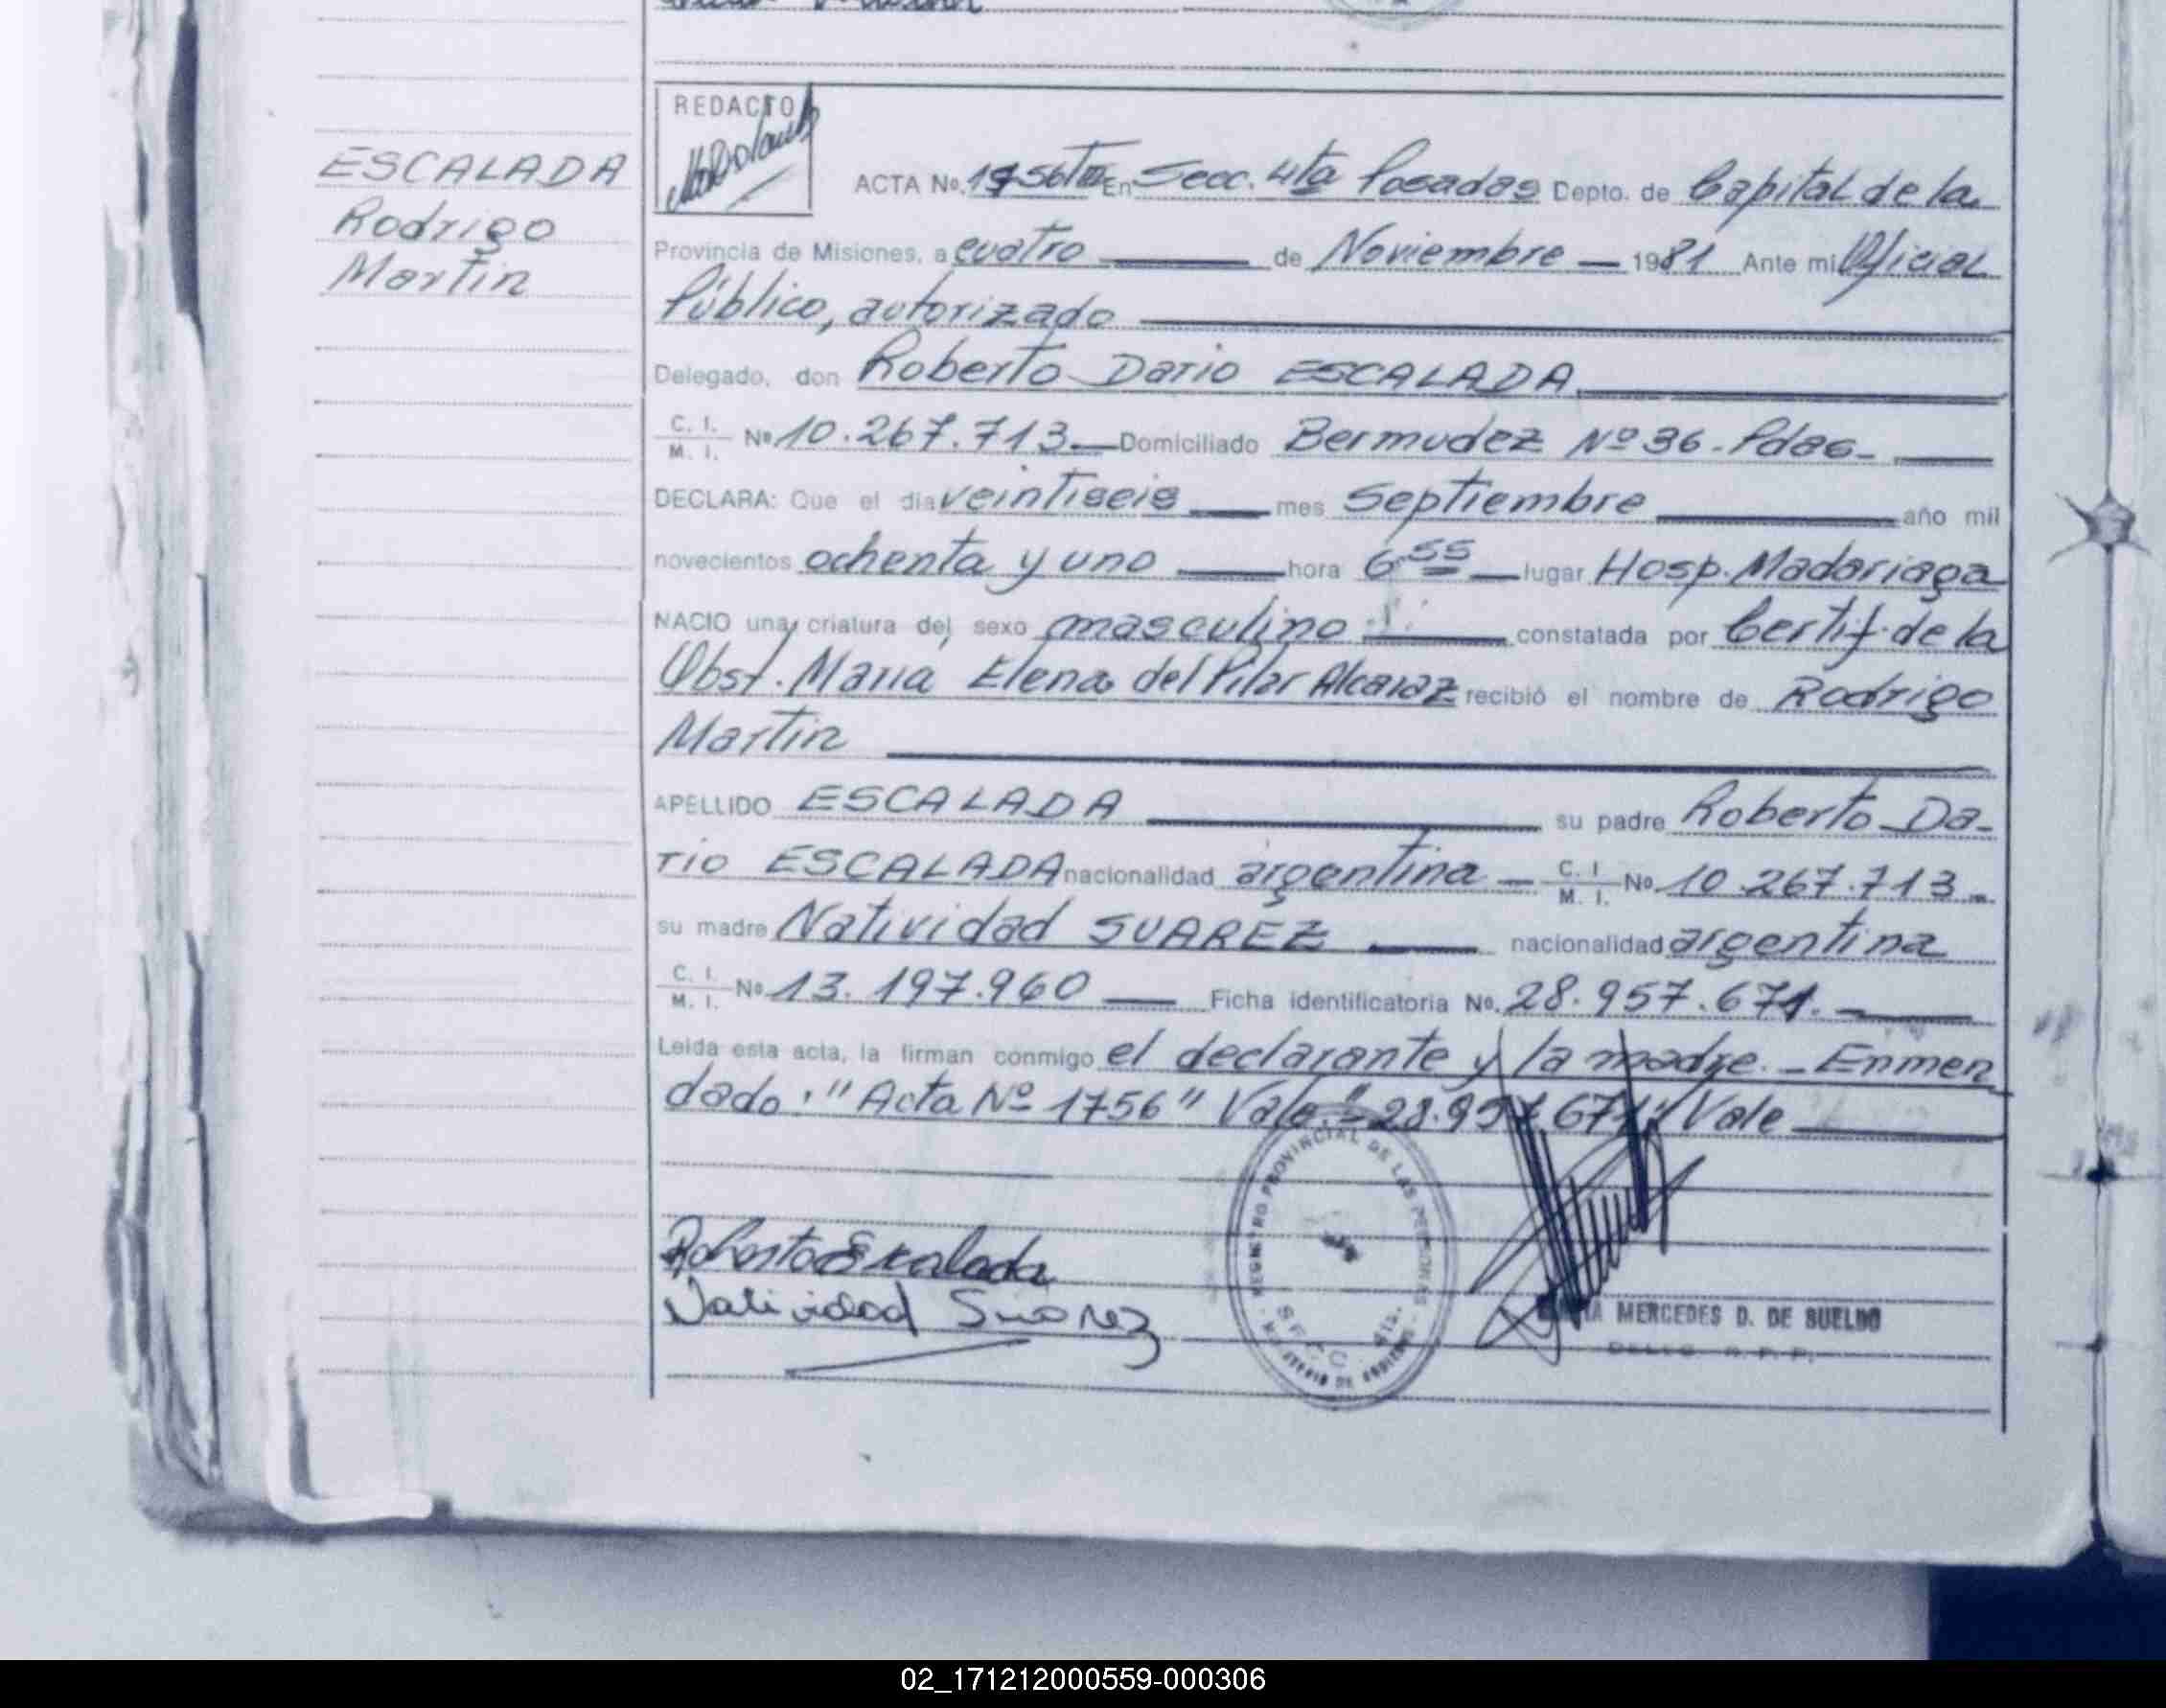 ESCALADA
Rodrigo
Martin
REDACTO
ACTA No. 1756 En Secc. 4ta Posadas Depto. de Capital de la
Provincia de Misiones, a cuatro de Noviembre 1981 Ante mi Oficial
Público, autorizado
Delegado, don Roberto Dario ESCALADA
C. I. / M. I. Nº 10.267.713 Domiciliado Bermudez Nº 36 - Pdas -
DECLARA: Que el dia veintiseis mes Septiembre año mil
novecientos ochenta y uno hora 6.55 lugar Hosp. Madariaga
NACIO una criatura del sexo masculino constatada por Certif. de la
Obst. Maria Elena del Pilar Alcaraz recibió el nombre de Rodrigo
Martin
APELLIDO ESCALADA su padre Roberto Da-
rio ESCALADA nacionalidad argentina C. I. / M. I. No. 10.267.713
su madre Natividad SUAREZ nacionalidad argentina
C. I. / M. I. Nº 13.197.960 Ficha identificatoria No. 28.957.671.
Leida esta acta, la firman conmigo el declarante y la madre. - Enmen
dado: "Acta Nº 1756" Vale. "28.957.671" Vale
REGISTRO PROVINCIAL DE LAS PERSONAS
Roberto Escalada
Natividad Suarez
MERCEDES D. DE SUELDO
02_171212000559-000306